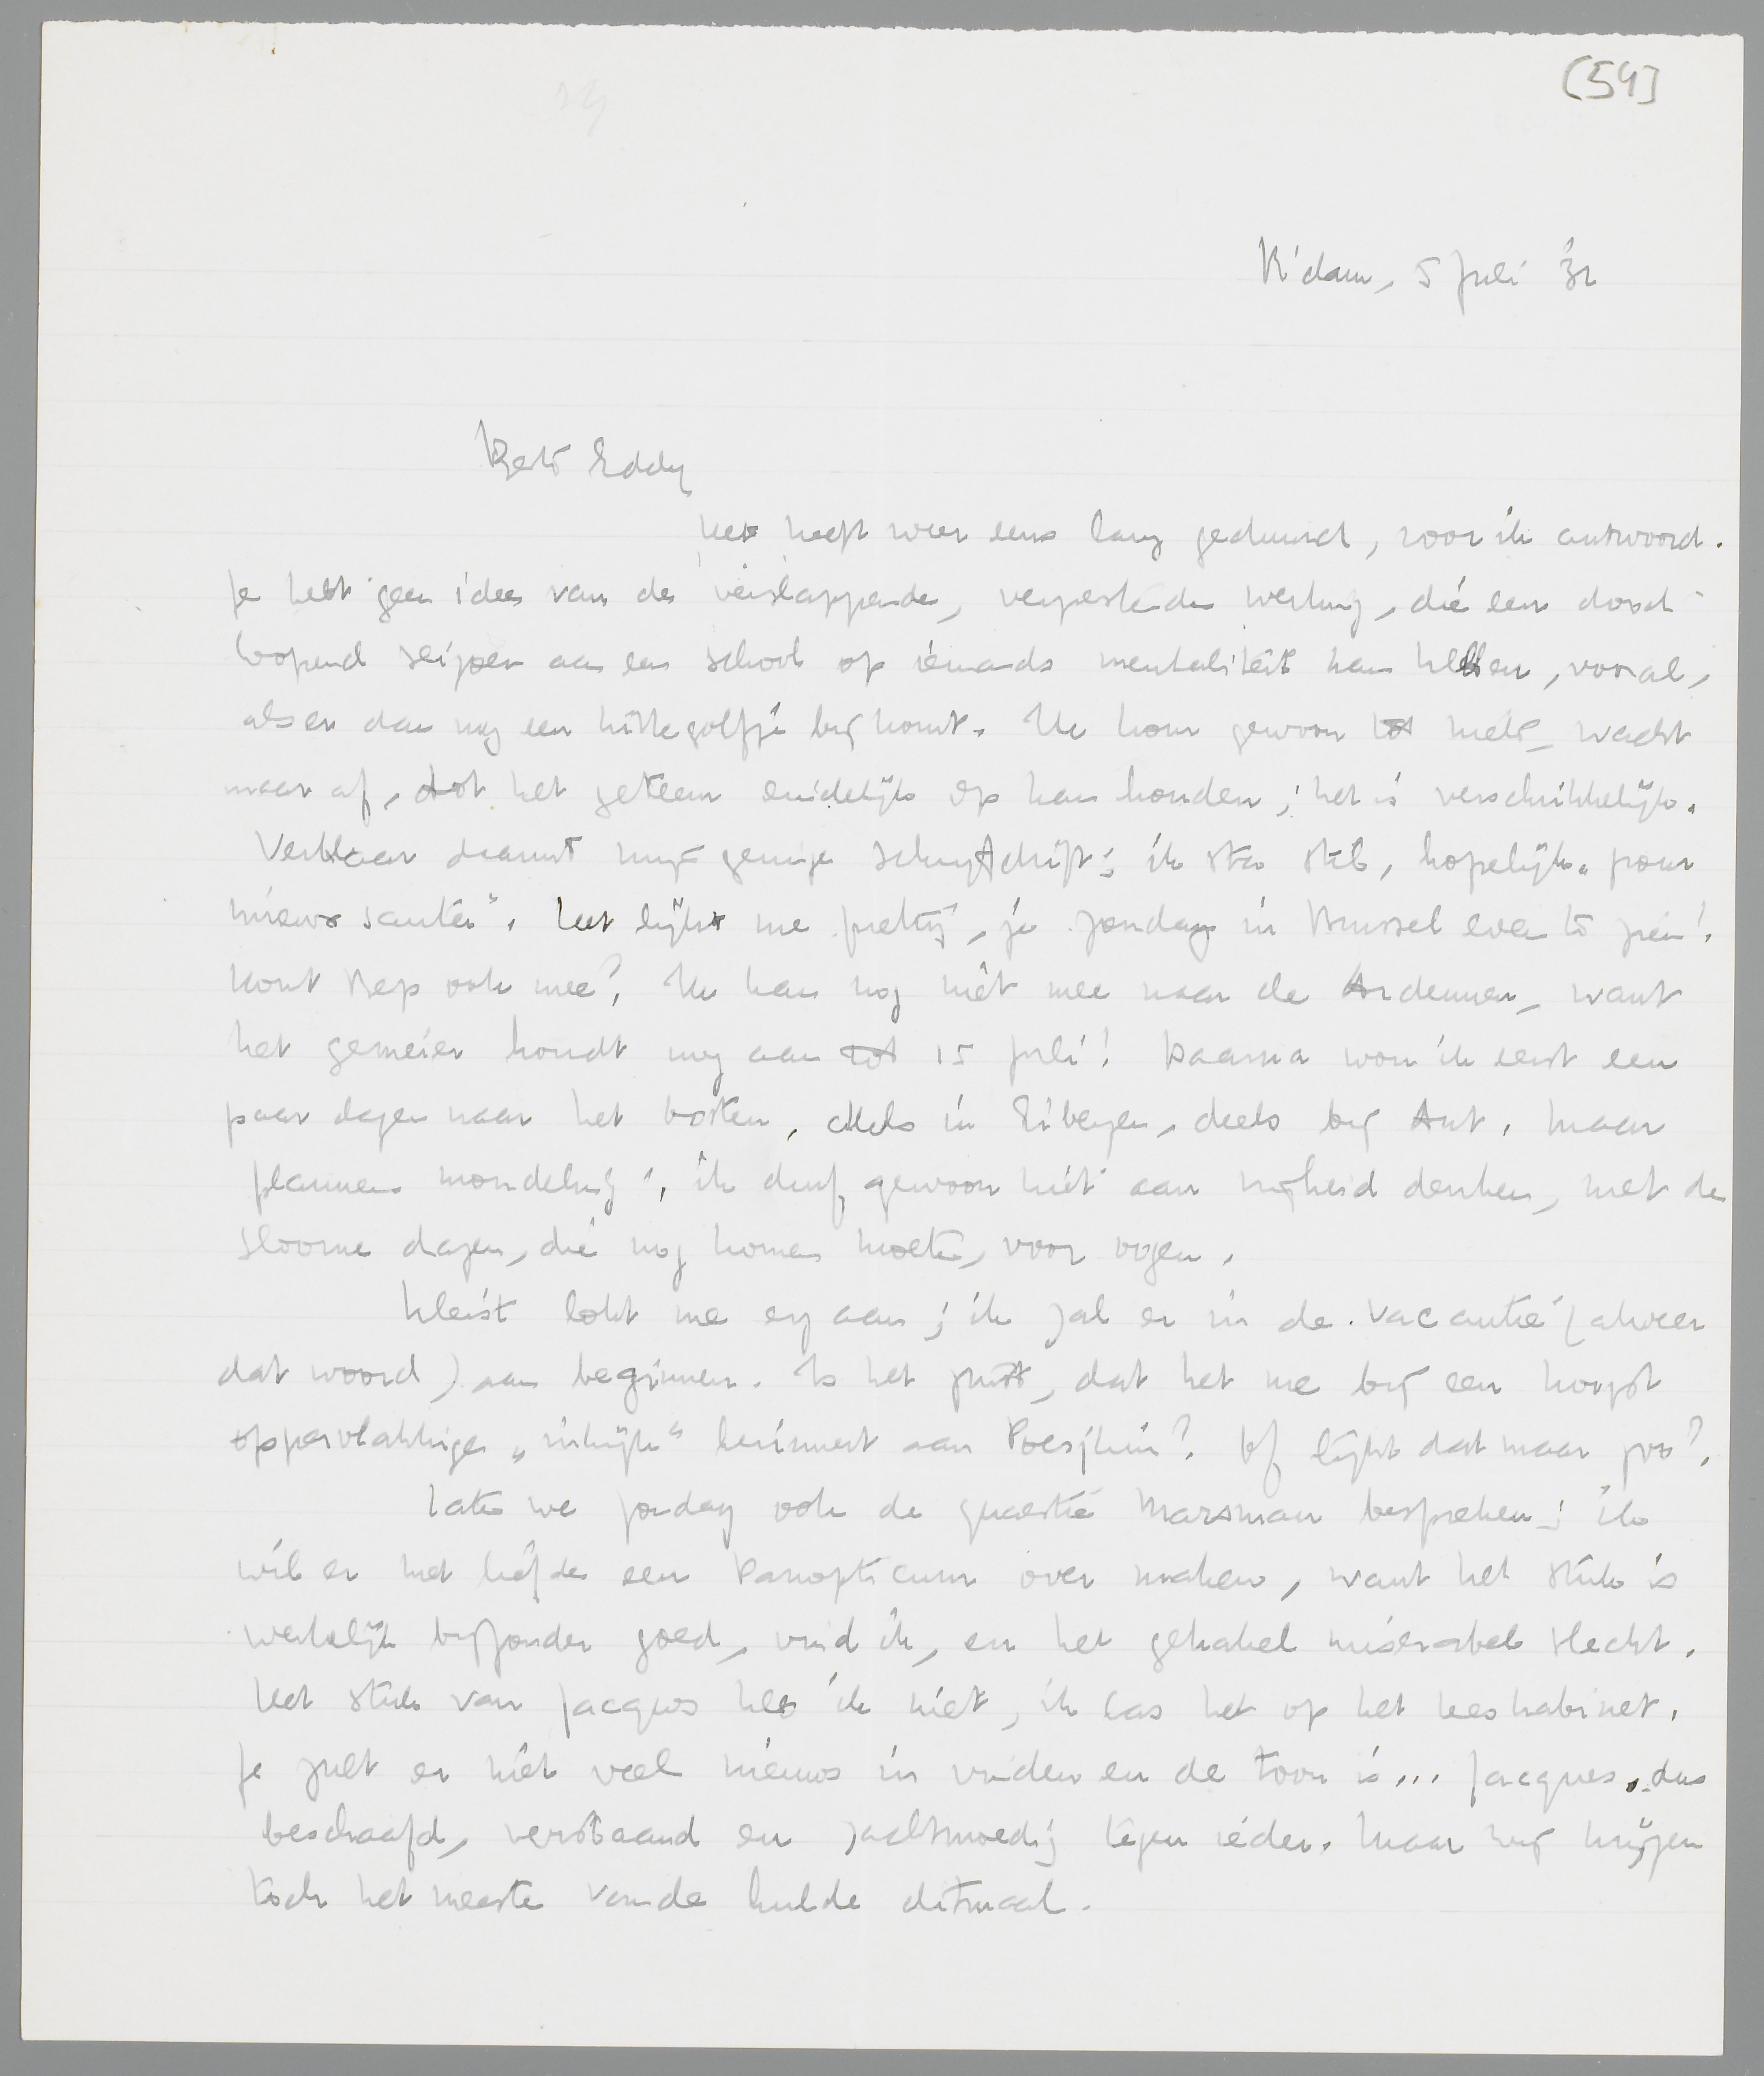 (54)
R'dam, 5 Juli '31
Beste Eddy
het heeft weer eens lang geduurd, voor ik antwoord.
Je hebt geen idee van de verslappende, verpestende werking, die een dood-
loopend seizoen aan een school op iemands mentaliteit kan hebben, vooral,
als er dan nog een hittegolfje bij komt. Ik kom gewoon tot niets, wacht
maar af, tot het geteem eindelijk op kan houden; het is verschrikkelijk.
Verklaar daaruit mijn geringe schrijfdrift; ik sta stil, hopelijk „pour
mieux sauter". Het lijkt me prettig, je Zondag in Brussel even te zien!
Komt Bep ook mee? Ik kan nog niet mee naar de Ardennen, want
het gemeier houdt nog aan tot 15 Juli! Daarna wou ik eerst een
paar dagen naar het Oosten, deels in Eibergen, deels bij Ant. Maar
plannen mondeling; ik durf gewoon niet aan vrijheid denken, met de
sloome dagen, die nog komen moeten, voor oogen.
Kleist lokt me erg aan; ik zal er in de vacantie (alweer
dat woord) aan beginnen. Is het juist, dat het me bij een hoogst
oppervlakkige „inkijk" herinnert aan Poesjkin? Of lijkt dat maar zoo?
Laten we Zondag ook de quaestie Marsman bespreken; ik
wil er met liefde een Panopticum over maken, want het stuk is
werkelijk bijzonder goed, vind ik, en het gekakel miserabel slecht.
Het stuk van Jacques heb ik niet, ik las het op het leeskabinet.
Je zult er niet veel nieuws in vinden en de toon is... Jacques, dus
beschaafd, verstaand en zachtmoedig tegen ieder. Maar wij krijgen
toch het meeste van de hulde ditmaal.